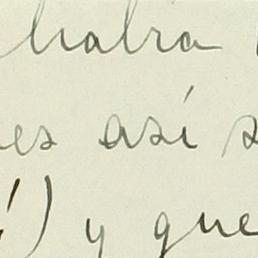 habra
es así s
) y que